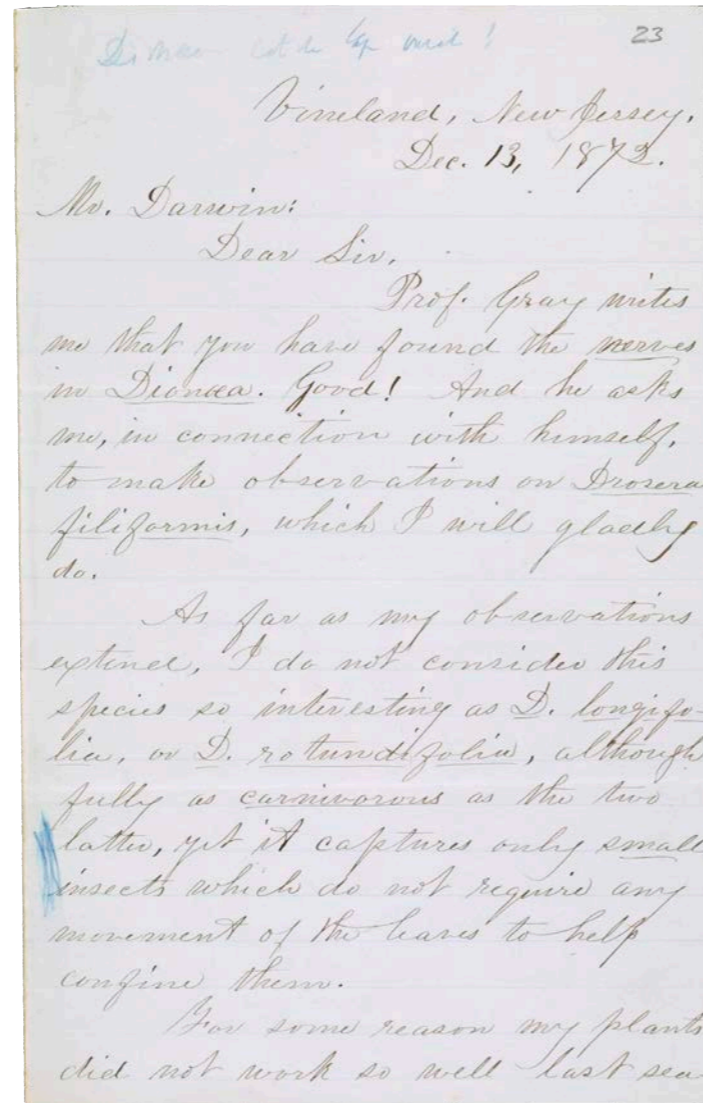 Dionæa
23
Vineland, New Jersey,
Dec. 13, 1872.
Mr. Darwin:
Dear Sir,
Prof. Gray writes
me that you have found the nerves
in Dionæa. Good! And he asks
me, in connection with himself,
to make observations on Drosera
filiformis, which I will gladly
do.
As far as my observations
extend, I do not consider this
species so interesting as D. longifo-
lia, or D. rotundifolia, although
fully as carnivorous as the two
latter, yet it captures only small
insects which do not require any
movement of the leaves to help
confine them.
For some reason my plants
did not work so well last sea